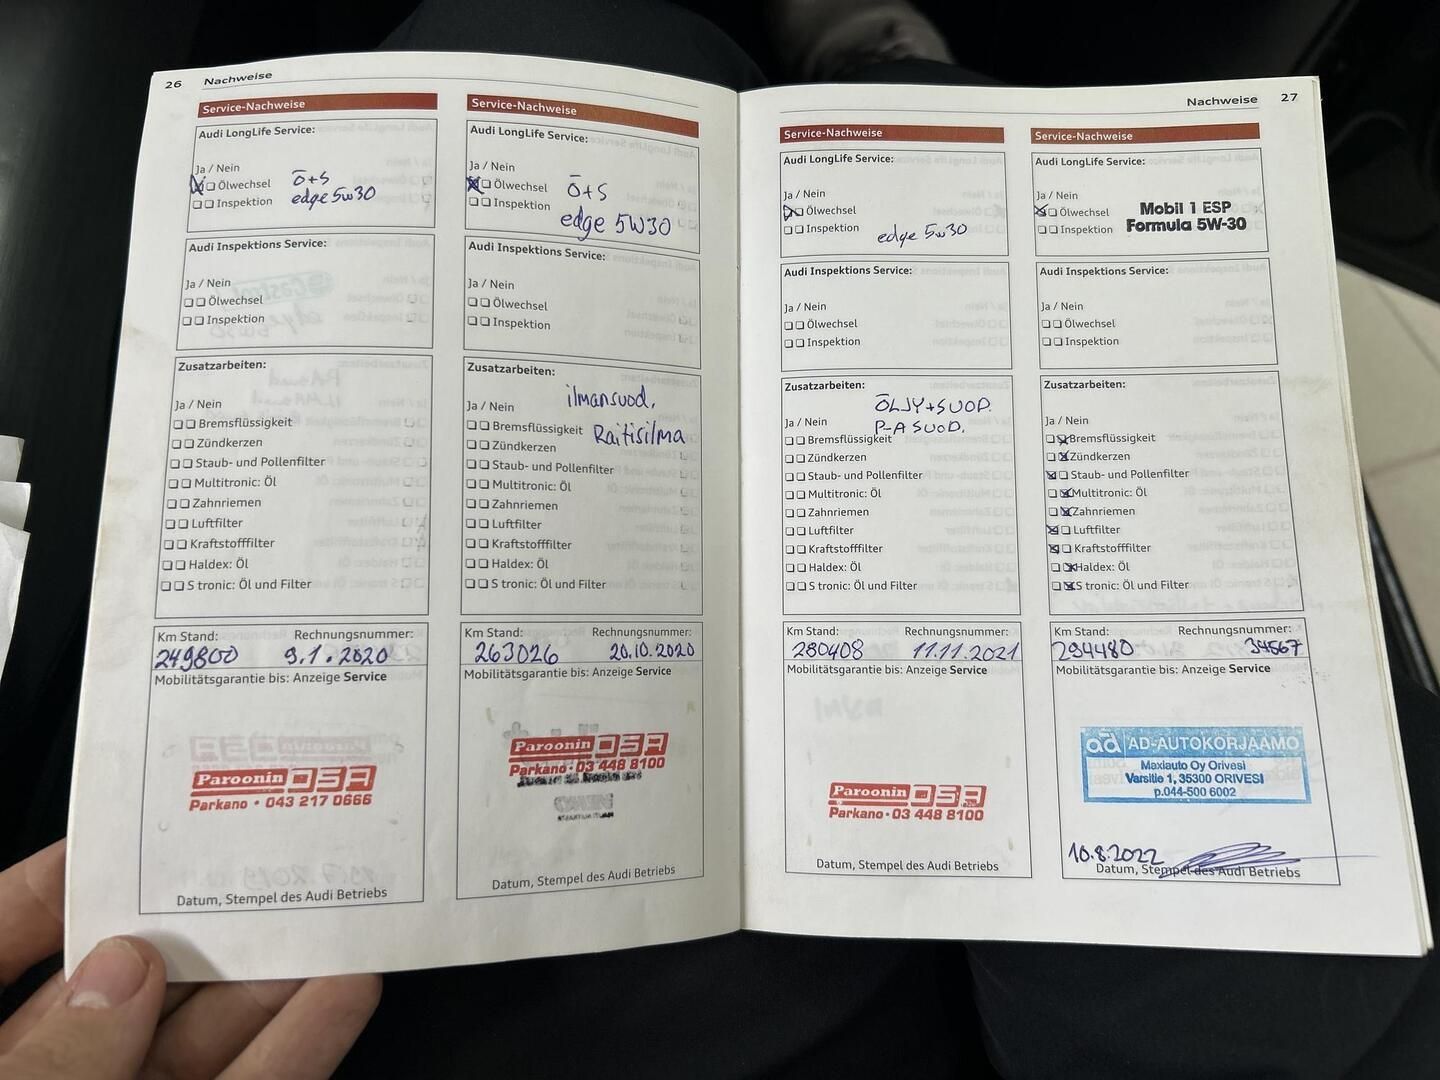 26 Nachweise
Service-Nachweise
Audi LongLife Service:
Ja / Nein
Ölwechsel Ö+S
Inspektion edge 5w30
Audi Inspektions Service:
Ja / Nein
Ölwechsel
Inspektion
Zusatzarbeiten:
Ja / Nein
Bremsflüssigkeit
Zündkerzen
Staub- und Pollenfilter
Multitronic: Öl
Zahnriemen
Luftfilter
Kraftstofffilter
Haldex: Öl
S tronic: Öl und Filter
Km Stand: Rechnungsnummer:
249800 9.1.2020
Mobilitätsgarantie bis: Anzeige Service
Paroonin OSA
Parkano • 043 217 0666
Datum, Stempel des Audi Betriebs
Service-Nachweise
Audi LongLife Service:
Ja / Nein
Ölwechsel Ö+S
Inspektion edge 5W30
Audi Inspektions Service:
Ja / Nein
Ölwechsel
Inspektion
Zusatzarbeiten:
ilmansuod.
Ja / Nein
Bremsflüssigkeit Raitisilma
Zündkerzen
Staub- und Pollenfilter
Multitronic: Öl
Zahnriemen
Luftfilter
Kraftstofffilter
Haldex: Öl
S tronic: Öl und Filter
Km Stand: Rechnungsnummer:
263026 20.10.2020
Mobilitätsgarantie bis: Anzeige Service
Paroonin OSA
Parkano • 03 448 8100
Datum, Stempel des Audi Betriebs
Nachweise 27
Service-Nachweise
Audi LongLife Service:
Ja / Nein
Ölwechsel
Inspektion edge 5w30
Audi Inspektions Service:
Ja / Nein
Ölwechsel
Inspektion
Zusatzarbeiten:
ÖLJY+SUOD.
Ja / Nein P-A SUOD.
Bremsflüssigkeit
Zündkerzen
Staub- und Pollenfilter
Multitronic: Öl
Zahnriemen
Luftfilter
Kraftstofffilter
Haldex: Öl
S tronic: Öl und Filter
Km Stand: Rechnungsnummer:
280408 11.11.2021
Mobilitätsgarantie bis: Anzeige Service
Paroonin OSA
Parkano • 03 448 8100
Datum, Stempel des Audi Betriebs
Service-Nachweise
Audi LongLife Service:
Ja / Nein
Ölwechsel Mobil 1 ESP
Inspektion Formula 5W-30
Audi Inspektions Service:
Ja / Nein
Ölwechsel
Inspektion
Zusatzarbeiten:
Ja / Nein
Bremsflüssigkeit
Zündkerzen
Staub- und Pollenfilter
Multitronic: Öl
Zahnriemen
Luftfilter
Kraftstofffilter
Haldex: Öl
S tronic: Öl und Filter
Km Stand: Rechnungsnummer:
294480 34567
Mobilitätsgarantie bis: Anzeige Service
ad AD-AUTOKORJAAMO
Maxiauto Oy Orivesi
Varsitie 1, 35300 ORIVESI
p.044-500 6002
10.8.2022
Datum, Stempel des Audi Betriebs